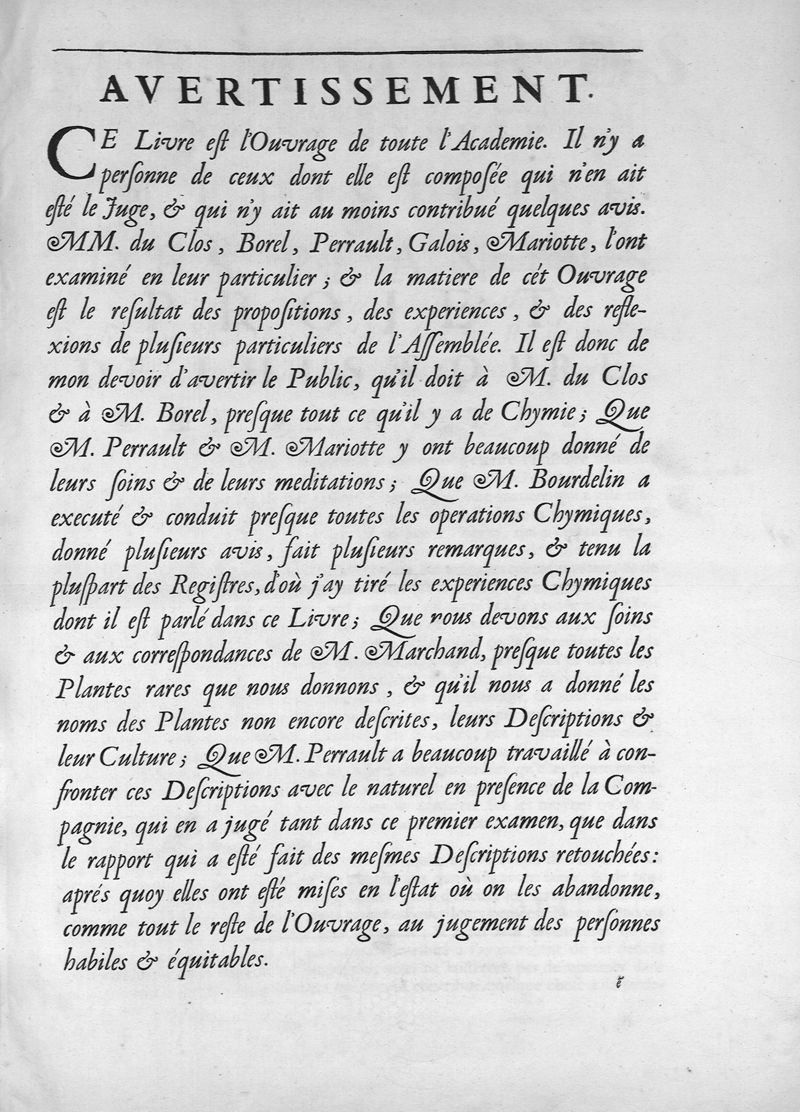 AVERTISSEMENT.
CE Livre eſt l'Ouvrage de toute l'Academie. Il n'y a
perſonne de ceux dont elle eſt compoſée qui n'en ait
eſté le Juge, & qui n'y ait au moins contribué quelques avis.
MM. du Clos, Borel, Perrault, Galois, Mariotte, l'ont
examiné en leur particulier; & la matiere de cét Ouvrage
eſt le reſultat des propoſitions, des experiences, & des refle-
xions de pluſieurs particuliers de l'Aſſemblée. Il eſt donc de
mon devoir d'avertir le Public, qu'il doit à M. du Clos
& à M. Borel, preſque tout ce qu'il y a de Chymie; Que
M. Perrault & M. Mariotte y ont beaucoup donné de
leurs ſoins & de leurs meditations; Que M. Bourdelin a
executé & conduit preſque toutes les operations Chymiques,
donné pluſieurs avis, fait pluſieurs remarques, & tenu la
pluſpart des Regiſtres, d'où j'ay tiré les experiences Chymiques
dont il eſt parlé dans ce Livre; Que nous devons aux ſoins
& aux correſpondances de M. Marchand, preſque toutes les
Plantes rares que nous donnons, & qu'il nous a donné les
noms des Plantes non encore deſcrites, leurs Deſcriptions &
leur Culture; Que M. Perrault a beaucoup travaillé à con-
fronter ces Deſcriptions avec le naturel en preſence de la Com-
pagnie, qui en a jugé tant dans ce premier examen, que dans
le rapport qui a eſté fait des meſmes Deſcriptions retouchées:
aprés quoy elles ont eſté miſes en l'eſtat où on les abandonne,
comme tout le reſte de l'Ouvrage, au jugement des perſonnes
habiles & équitables.
ẽ